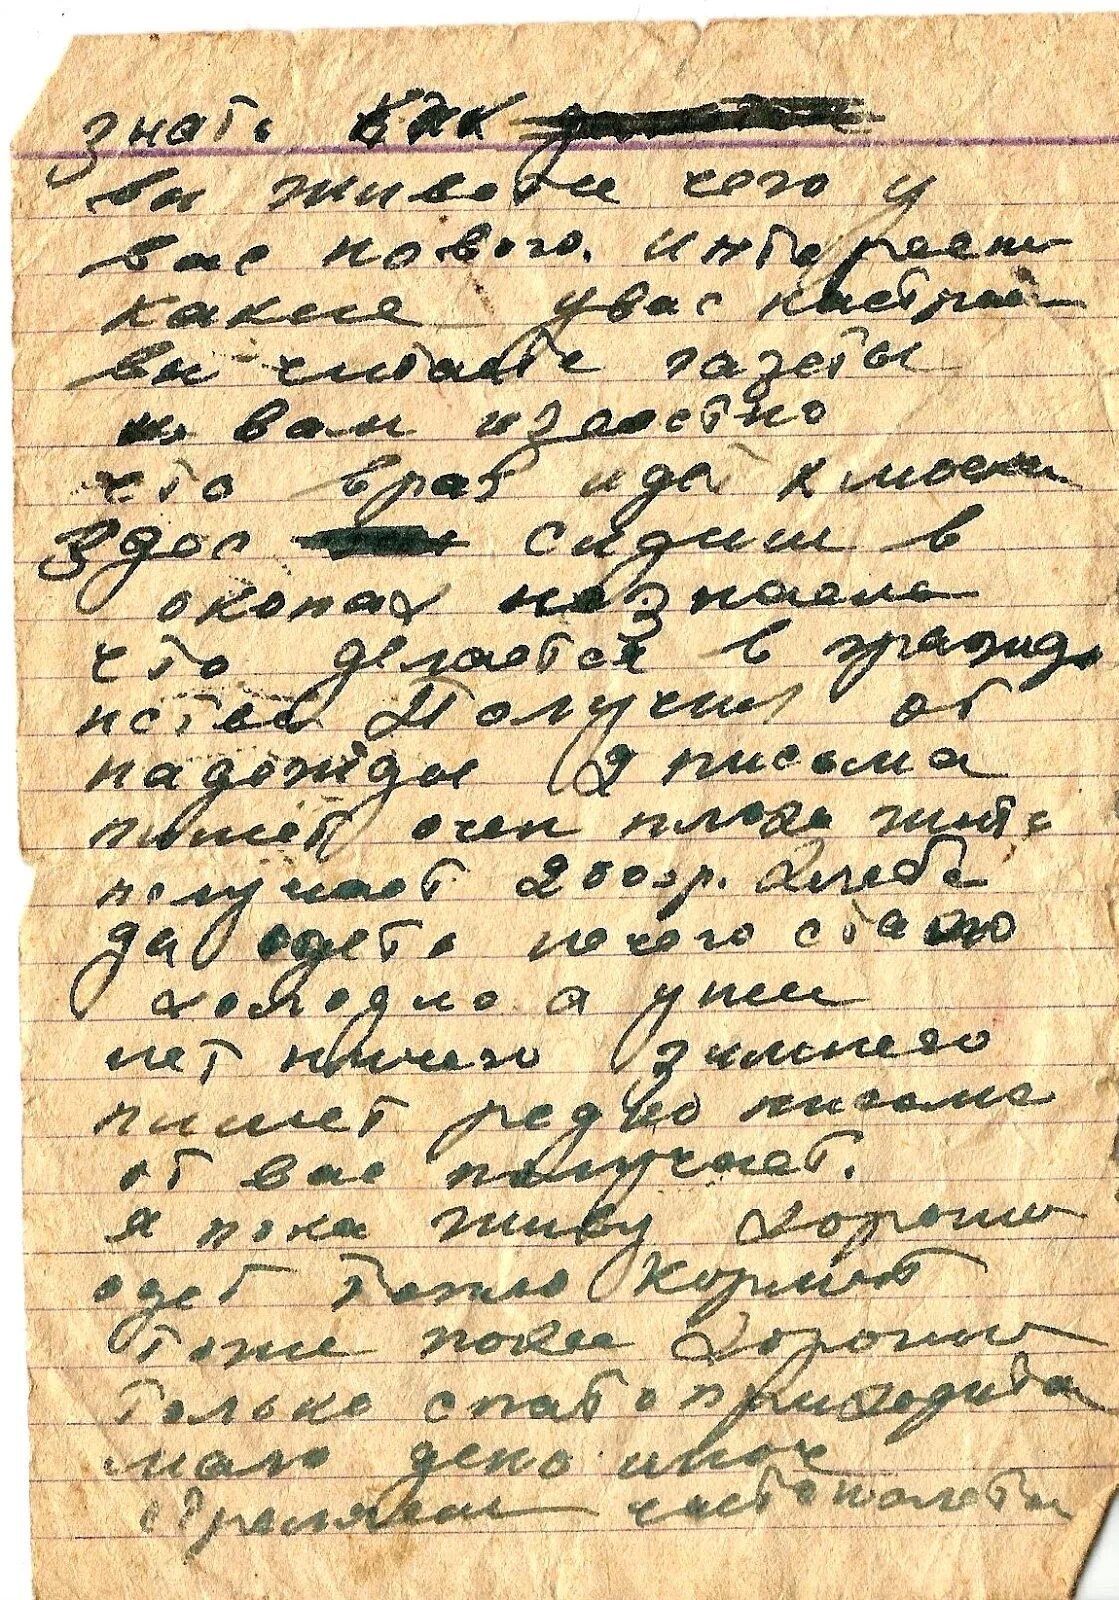 знать как
вы живете чего у
вас нового. интересно
какие у вас настрое
вы читаете газеты
и вам известно
что враг идет к москве
Здес сидиш в
окопах незнаеш
что делается в гражда
нстве Получил от
надежды 2 письма
пишет очен плохо жить
получает 200 гр. Хлеба
да одеть нечего стало
холодно а у нее
нет ничего зимнего
пишет редко письма
от вас получает.
я пока живу хорошо
одет тепло Кормят
тоже пока хорошо
только спать приходится
мало день и ноч
стреляем